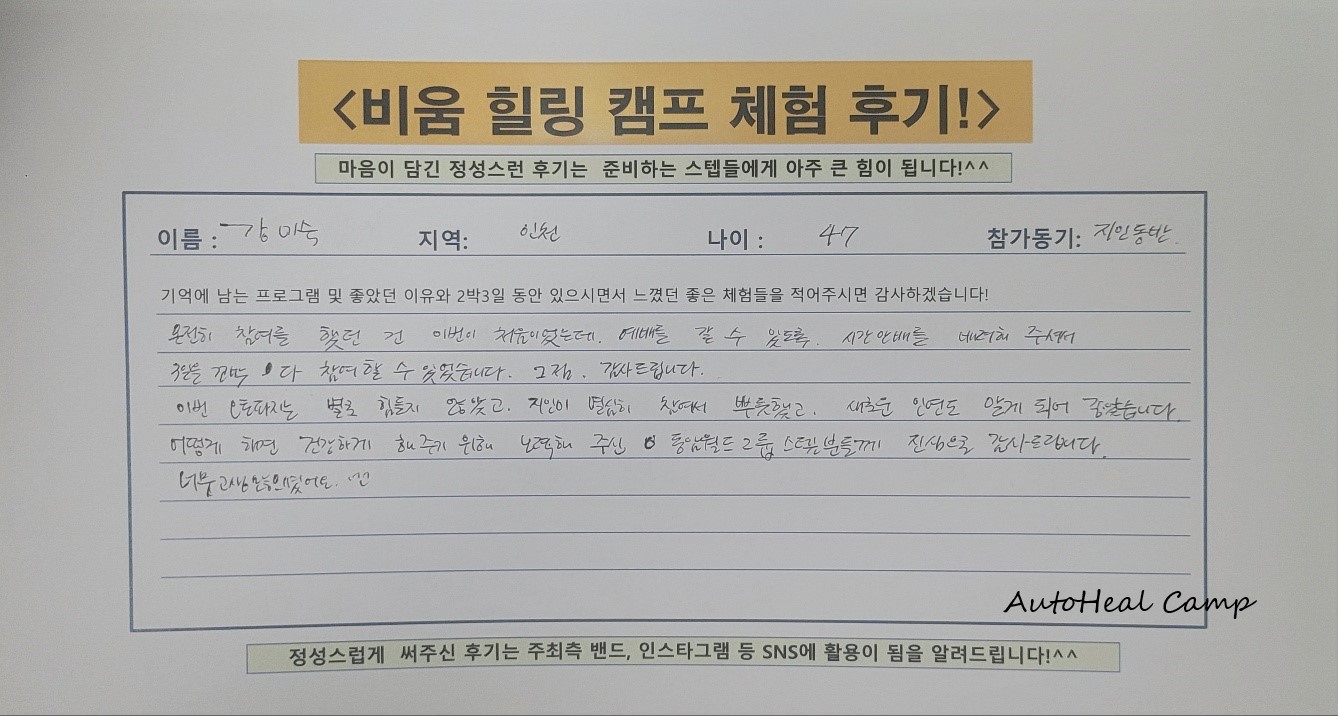 <비움 힐링 캠프 체험 후기!>
마음이 담긴 정성스런 후기는 준비하는 스텝들에게 아주 큰 힘이 됩니다!^^
이름 : 강미숙 지역: 인천 나이 : 47 참가동기: 지인동반.
기억에 남는 프로그램 및 좋았던 이유와 2박3일 동안 있으시면서 느꼈던 좋은 체험들을 적어주시면 감사하겠습니다!
온전히 참여를 했던 건 이번이 처음이었는데. 예배를 갈 수 있도록. 시간안배를 배려해 주셔서
3일을 다 참여할 수 있었습니다. 그점. 감사드립니다.
이번 별로 힘들지 않았고. 지인이 열심히 참여해서 뿌듯했고. 새로운 인연도 알게 되어 좋았습니다.
어떻게 하면 건강하게 해주기 위해 노력해 주신 동암월드그룹 스텝분들께 진심으로 감사드립니다.
너무
AutoHeal Camp
정성스럽게 써주신 후기는 주최측 밴드, 인스타그램 등 SNS에 활용이 됨을 알려드립니다!^^